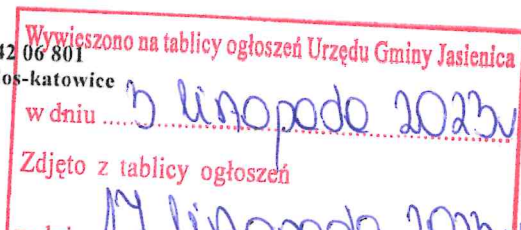 42 06 801
os-katowice
Wywieszono na tablicy ogłoszeń Urzędu Gminy Jasienica
w dniu 3 listopada 2023r
Zdjęto z tablicy ogłoszeń
17 listopada 2023